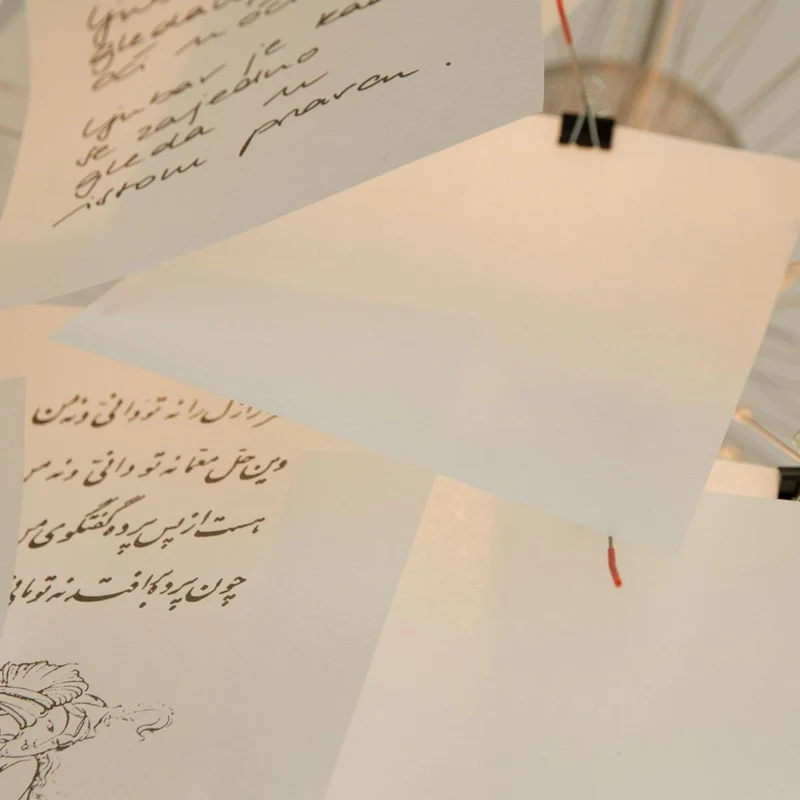 oči u oči
Ljubav je kad
se zajedno
gleda u
istom pravcu .
ازل را نه تو دانی و نه من
وین حل معما نه تو دانی و نه
هست از پس پرده گفتگوی
چون پرده برافتد نه تو